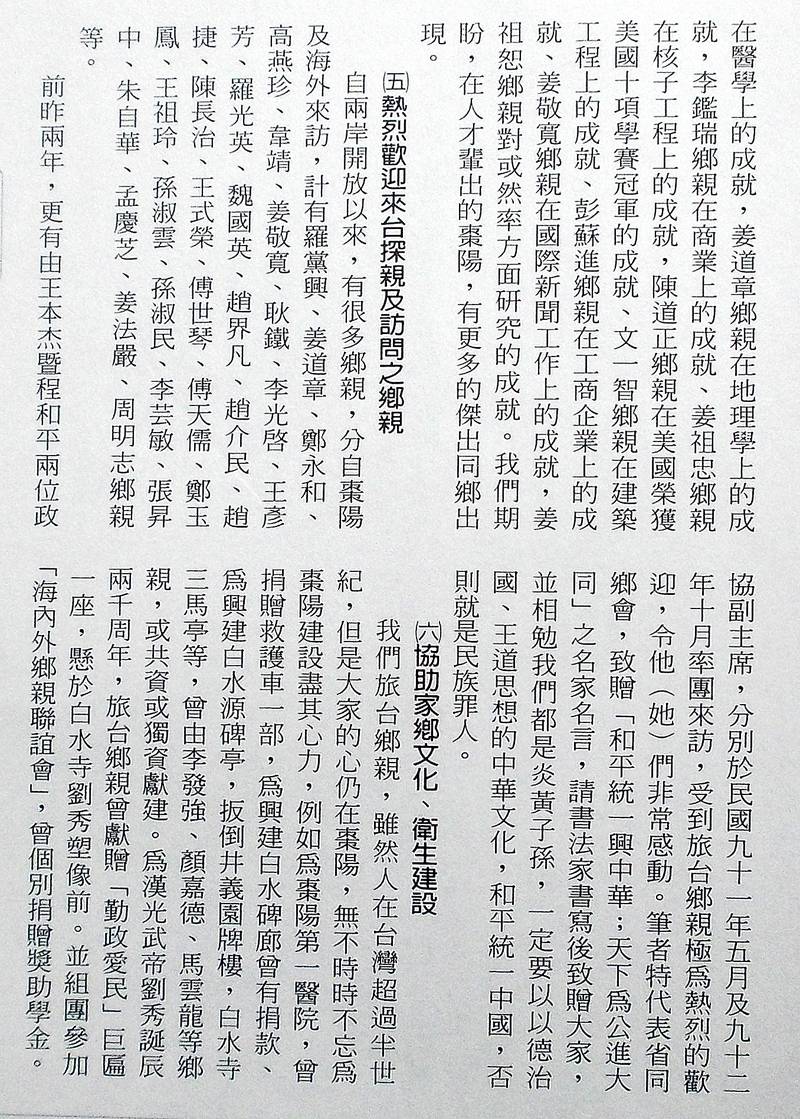 在醫學上的成就，姜道章鄉親在地理學上的成
就，李鑑瑞鄉親在商業上的成就、姜祖忠鄉親
在核子工程上的成就，陳道正鄉親在美國榮獲
美國十項學賽冠軍的成就、文一智鄉親在建築
工程上的成就、彭蘇進鄉親在工商企業上的成
就、姜敬寬鄉親在國際新聞工作上的成就，姜
祖恕鄉親對或然率方面研究的成就。我們期
盼，在人才輩出的棗陽，有更多的傑出同鄉出
現。
㈤熱烈歡迎來台探親及訪問之鄉親
自兩岸開放以來，有很多鄉親，分自棗陽
及海外來訪，計有羅黨興、姜道章、鄭永和、
高燕珍、韋靖、姜敬寬、耿鐵、李光啓、王彥
芳、羅光英、魏國英、趙界凡、趙介民、趙
捷、陳長治、王式榮、傅世琴、傅天儒、鄭玉
鳳、王祖玲、孫淑雲、孫淑民、李芸敏、張昇
中、朱自華、孟慶芝、姜法嚴、周明志鄉親
等。
前昨兩年，更有由王本杰暨程和平兩位政
協副主席，分別於民國九十一年五月及九十二
年十月率團來訪，受到旅台鄉親極爲熱烈的歡
迎，令他（她）們非常感動。筆者特代表省同
鄉會，致贈「和平統一興中華；天下爲公進大
同」之名家名言，請書法家書寫後致贈大家，
並相勉我們都是炎黃子孫，一定要以以德治
國、王道思想的中華文化，和平統一中國，否
則就是民族罪人。
㈥協助家鄉文化、衛生建設
我們旅台鄉親，雖然人在台灣超過半世
紀，但是大家的心仍在棗陽，無不時時不忘爲
棗陽建設盡其心力，例如爲棗陽第一醫院，曾
捐贈救護車一部，爲興建白水碑廊曾有捐款、
爲興建白水源碑亭，扳倒井義園牌樓，白水寺
三馬亭等，曾由李發強、顏嘉德、馬雲龍等鄉
親，或共資或獨資獻建。爲漢光武帝劉秀誕辰
兩千周年，旅台鄉親曾獻贈「勤政愛民」巨匾
一座，懸於白水寺劉秀塑像前。並組團參加
「海內外鄉親聯誼會」，曾個別捐贈獎助學金。